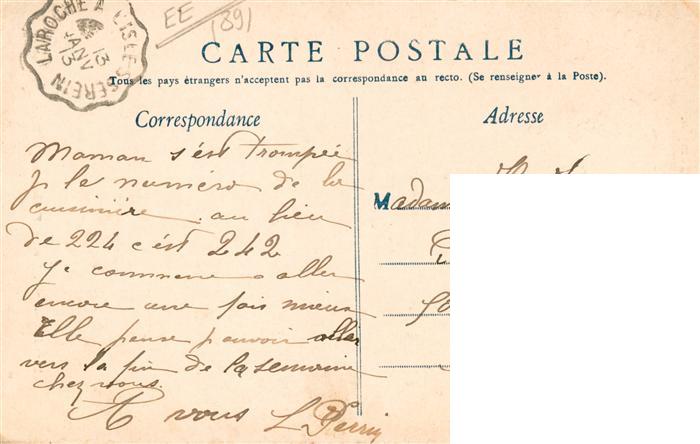 LAROCHE A L'ISLE-S-SEREIN
13
JANV
13
EE (89)
CARTE POSTALE
Tous les pays étrangers n'acceptent pas la correspondance au recto. (Se renseigner à la Poste).
Correspondance
Adresse
Maman s'est trompée
p le numéro de la
cuisinière au lieu
de 224 c'est 242
Je commence a aller
encore une fois mieux
Elle pense pouvoir aller
vers la fin de la semaine
chez vous.
A vous L Perrin
Madam